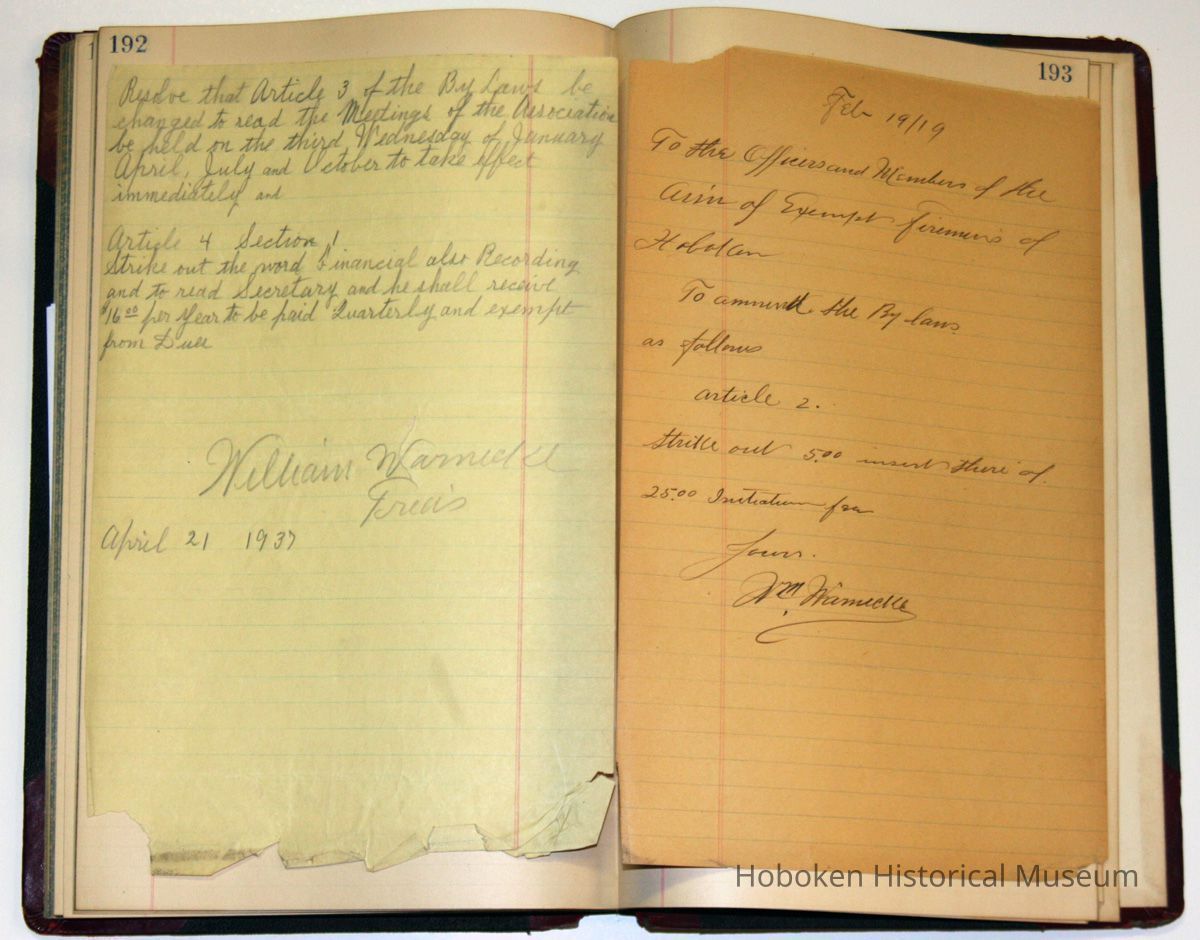 192
Resolve that Article 3 of the By Laws be
changed to read the Meetings of the Association
be held on the third Wednesday of January
April, July and October to take effect
immediately and
Article 4 Section 1
Strike out the word Financial also Recording
and to read Secretary and he shall receive
$16.00 per year to be paid Quarterly and exempt
from Dues
William Warnecke
April 21 1937
193
Feb 19/19
To the Officers and Members of the
Assn of Exempt Firemens of
Hoboken
To ammend the By laws
as follows
article 2.
Strike out 5.00 insert there of.
25.00 Initiation fee
Yours.
Wm. Warnecke
Hoboken Historical Museum